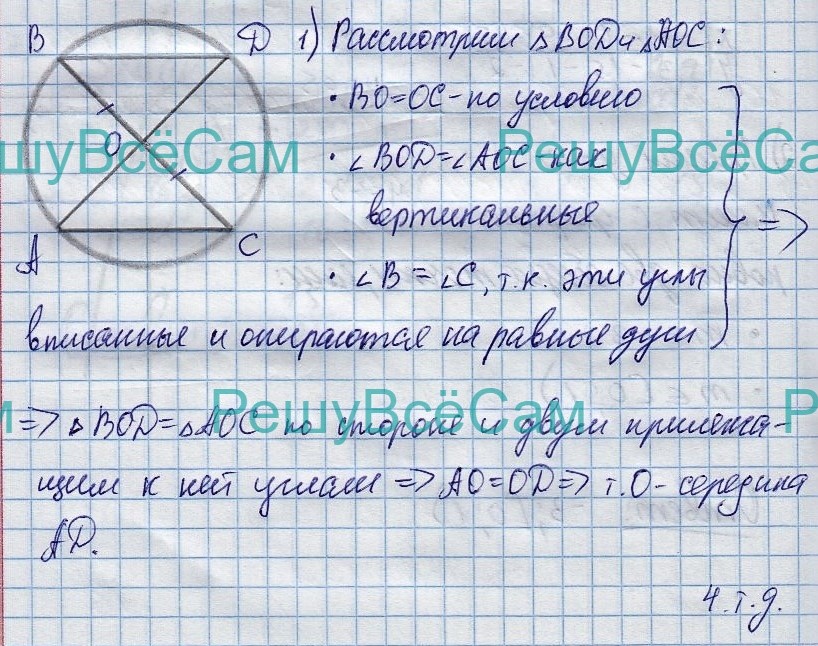 B D 1) Рассмотрим △BOD и △AOC:
• BO=OC - по условию
O
• ∠BOD=∠AOC - как
вертикальные
=>
A C
• ∠B = ∠C, т.к. эти углы
вписанные и опираются на равные дуги
=> △BOD=△AOC по стороне и двум прилежа-
щим к ней углам => AO=OD => т.O - середина
AD.
ч.т.д.
РешуВсёСам
РешуВсёСам
РешуВсёСам